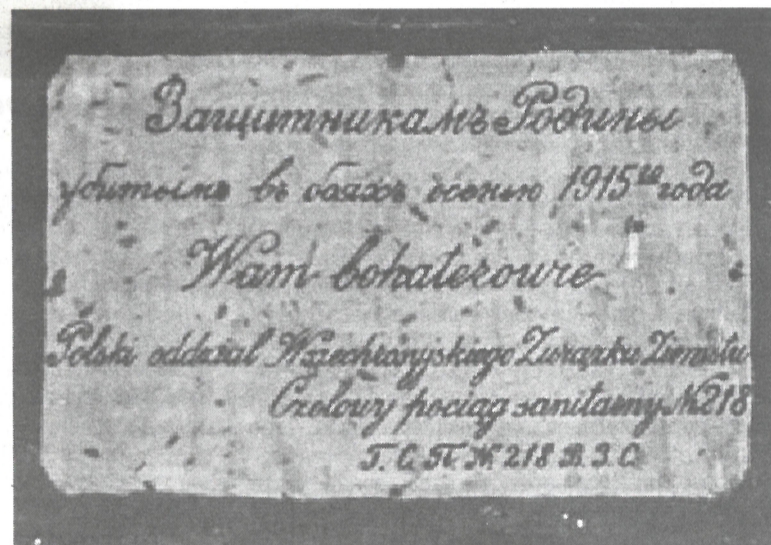 Защитникамъ Родины
убитымъ въ бояхъ осенью 1915го года
Wam bohaterowie
Polski oddział Wszechrosyjskiego Związku Ziemstw
Czołowy pociąg sanitarny № 218
Г. С. П. № 218 В. З. С.